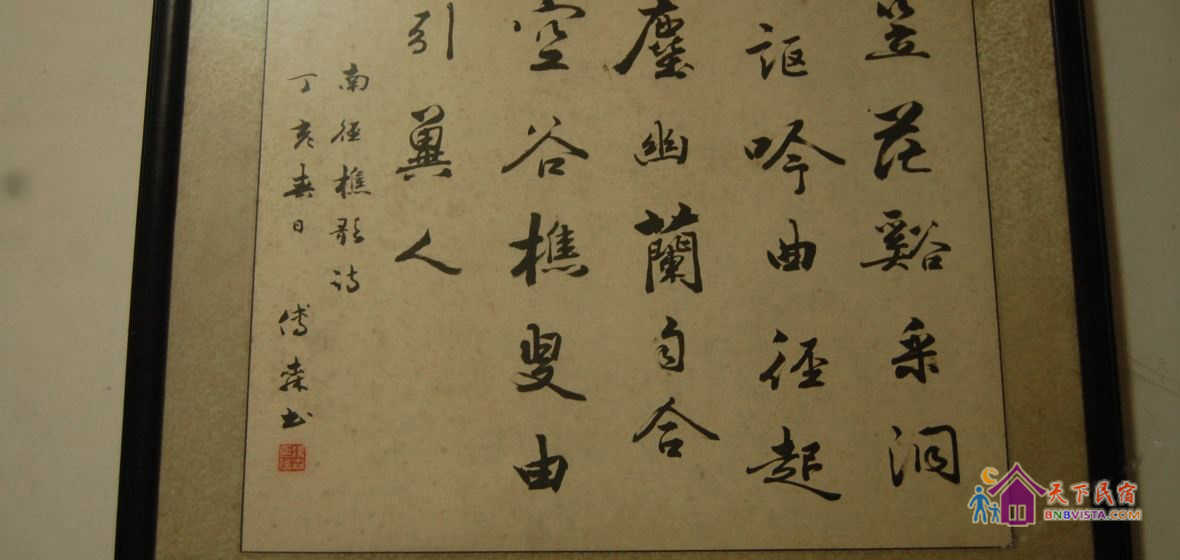 笠花谿采洞
讴吟曲径起
塵幽蘭自合
空谷樵叟由
引異人
南径樵歌诗
丁亥春日 傅森书
天下民宿
BNBVISTA.COM